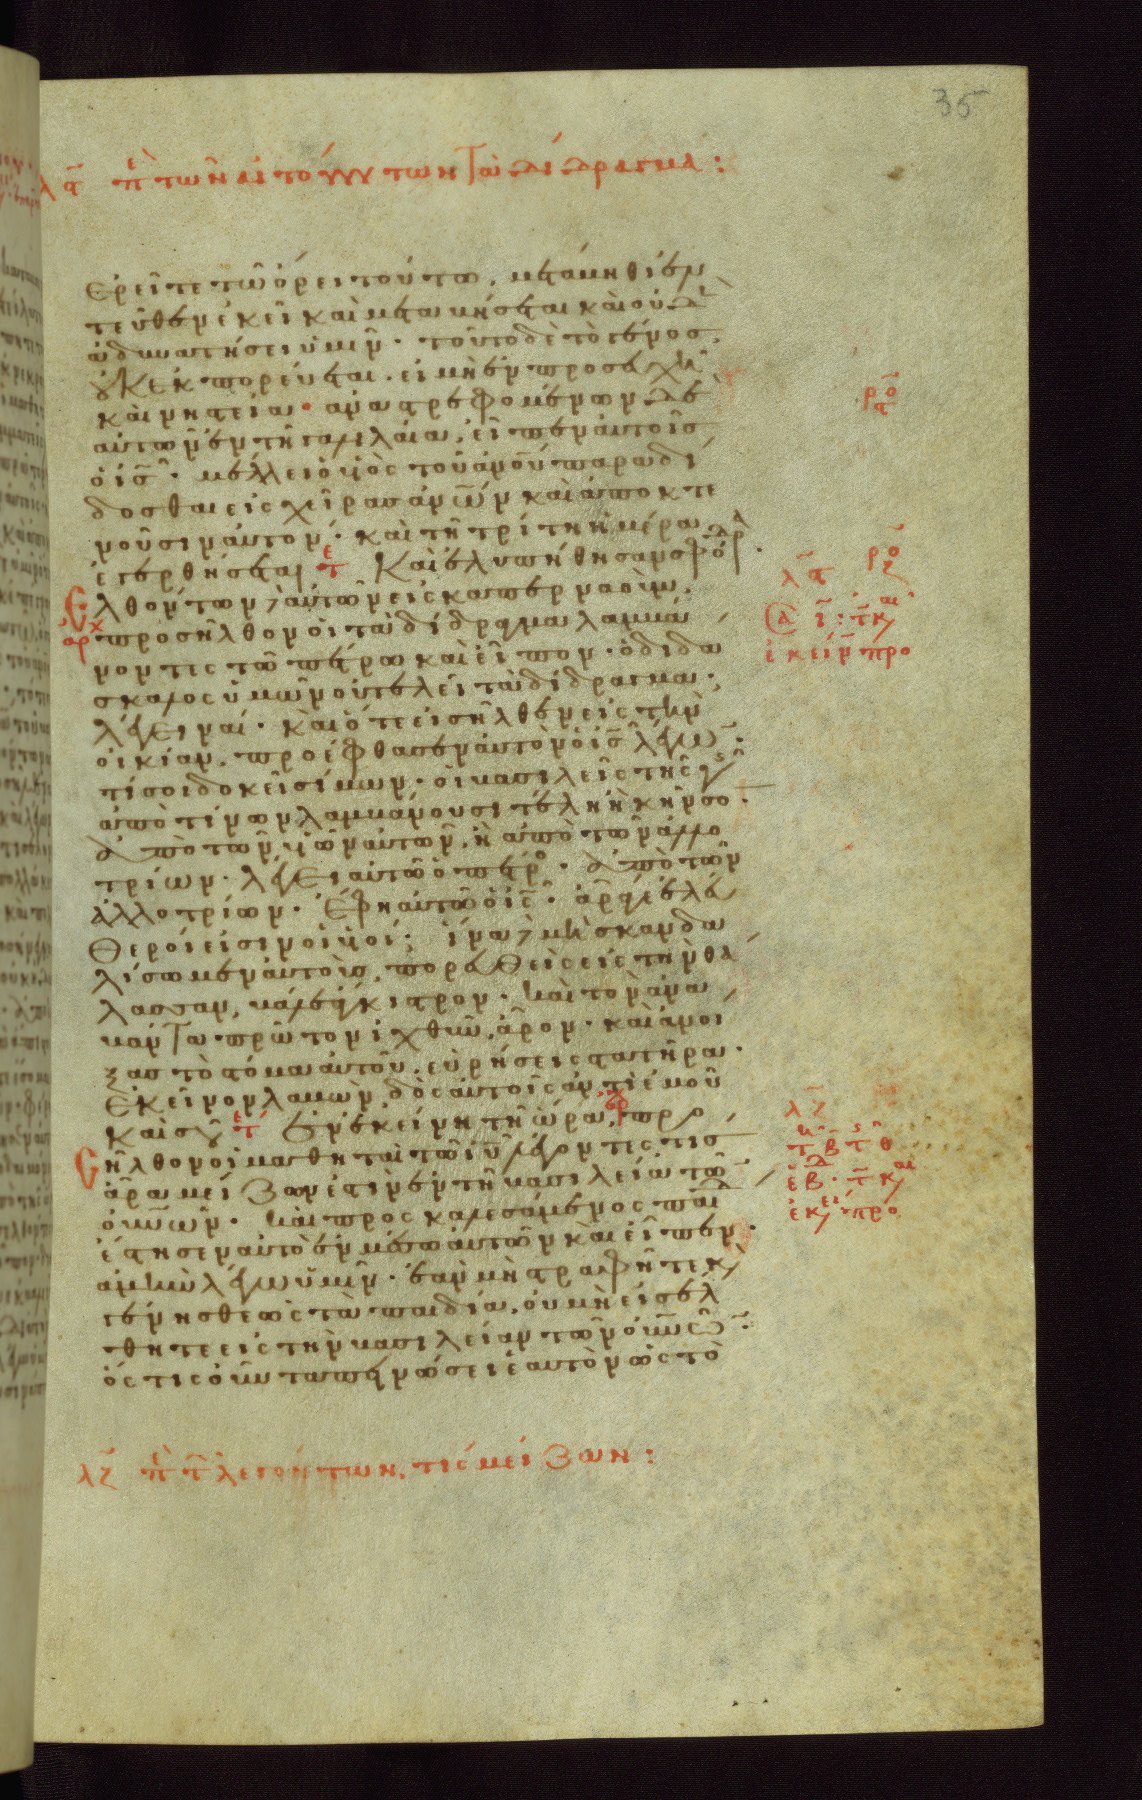 35
λϛ̄ πε τῶν αἰτούντων τὰ δίδραγμα:
ἐρεῖτε τῶ ὄρει τούτω, μετάβηθι ἐν
τεῦθεν ἐκεῖ καὶ μεταβήσεται καὶ οὐδ
ἀδυνατήσει ὑμῖν· τοῦτο δὲ τὸ γένος
οὐκ ἐκπορεύεται· εἰ μὴ ἐν προσευχῆ
καὶ νηστεία· ἀναστρεφομένων δὲ
αὐτῶν ἐν τῆ γαλιλαία, εἶπεν αὐτοῖς
ὁ ις̄· μέλλει ὁ υἱὸς τοῦ ἀνου παραδί
δοσθαι εἰς χεῖρας ανων καὶ ἀποκτε
νοῦσιν αὐτόν· καὶ τῆ τρίτη ἡμέρα
ἐγερθήσεται τε Καὶ ἐλυπήθησαν σφόδρ·
Ελθόντων αὐτῶν εἰς καπερναοὺμ,
αρχ προσῆλθον οἱ τὰ δίδραγμα λαμβά
νοντες τῶ πέτρω καὶ εἶπον· ὁ διδά
σκαλος ὑμῶν οὐ τελεῖ τὰ δίδραγμα;
λέγει ναί· καὶ ὅτε εἰσῆλθεν εἰς τὴν
οἰκίαν, προέφθασεν αὐτὸν ὁ ις̄ λέγων·
τί σοι δοκεῖ σίμων· οἱ βασιλεῖς τῆς γῆς
ἀπὸ τίνων λαμβάνουσι τέλη ἢ κῆνσον·
ἀπὸ τῶν υἱῶν αὐτῶν, ἢ ἀπὸ τῶν ἀλλο
τρίων· λέγει αὐτῶ ὁ πέτρος· ἀπὸ τῶν
ἀλλοτρίων· Ἔφη αὐτῶ ὁ ις̄· ἄραγε ἐλεύ
θεροί εἰσιν οἱ υἱοί; ἵνα μὴ σκανδα
λίσωμεν αὐτοὺς, πορευθεὶς εἰς τὴν θά
λασσαν, βάλε ἄγκιστρον· καὶ τὸν ἀνα
βάντα πρῶτον ἰχθῦν, ἆρον· καὶ ἀνοί
ξας τὸ στόμα αὐτοῦ, εὑρήσεις στατῆρα·
Ἐκεῖνον λαβὼν δὸς αὐτοῖς ἀντὶ ἐμοῦ
καὶ σοῦ τε Ἐν ἐκείνη τῆ ὥρα, αρ προ
Cῆλθον οἱ μαθηταὶ τῶ ιῦ λέγοντες τίς
ἄρα μείζων ἐστὶν ἐν τῆ βασιλεία τῶν
ουνων· καὶ προσκαλεσάμενος παιδ
ἔστησεν αὐτὸ ἐν μέσω αὐτῶν καὶ εἶπεν·
ἀμὴν λέγω ὑμῖν· ἐὰν μὴ στραφῆτε κ
γένησθε ὡς τὰ παιδία, οὐ μὴ εἰσέλ
θητε εἰς τὴν βασιλείαν τῶν ουνων·
ὅστις οὖν ταπεινώσει ἑαυτὸν ὡς τὸ
λζ̄ πε τ λεγόντων, τίς μείζων:
ροϛ
ροζ
λϛ̄
ἐκείν προ
λζ̄